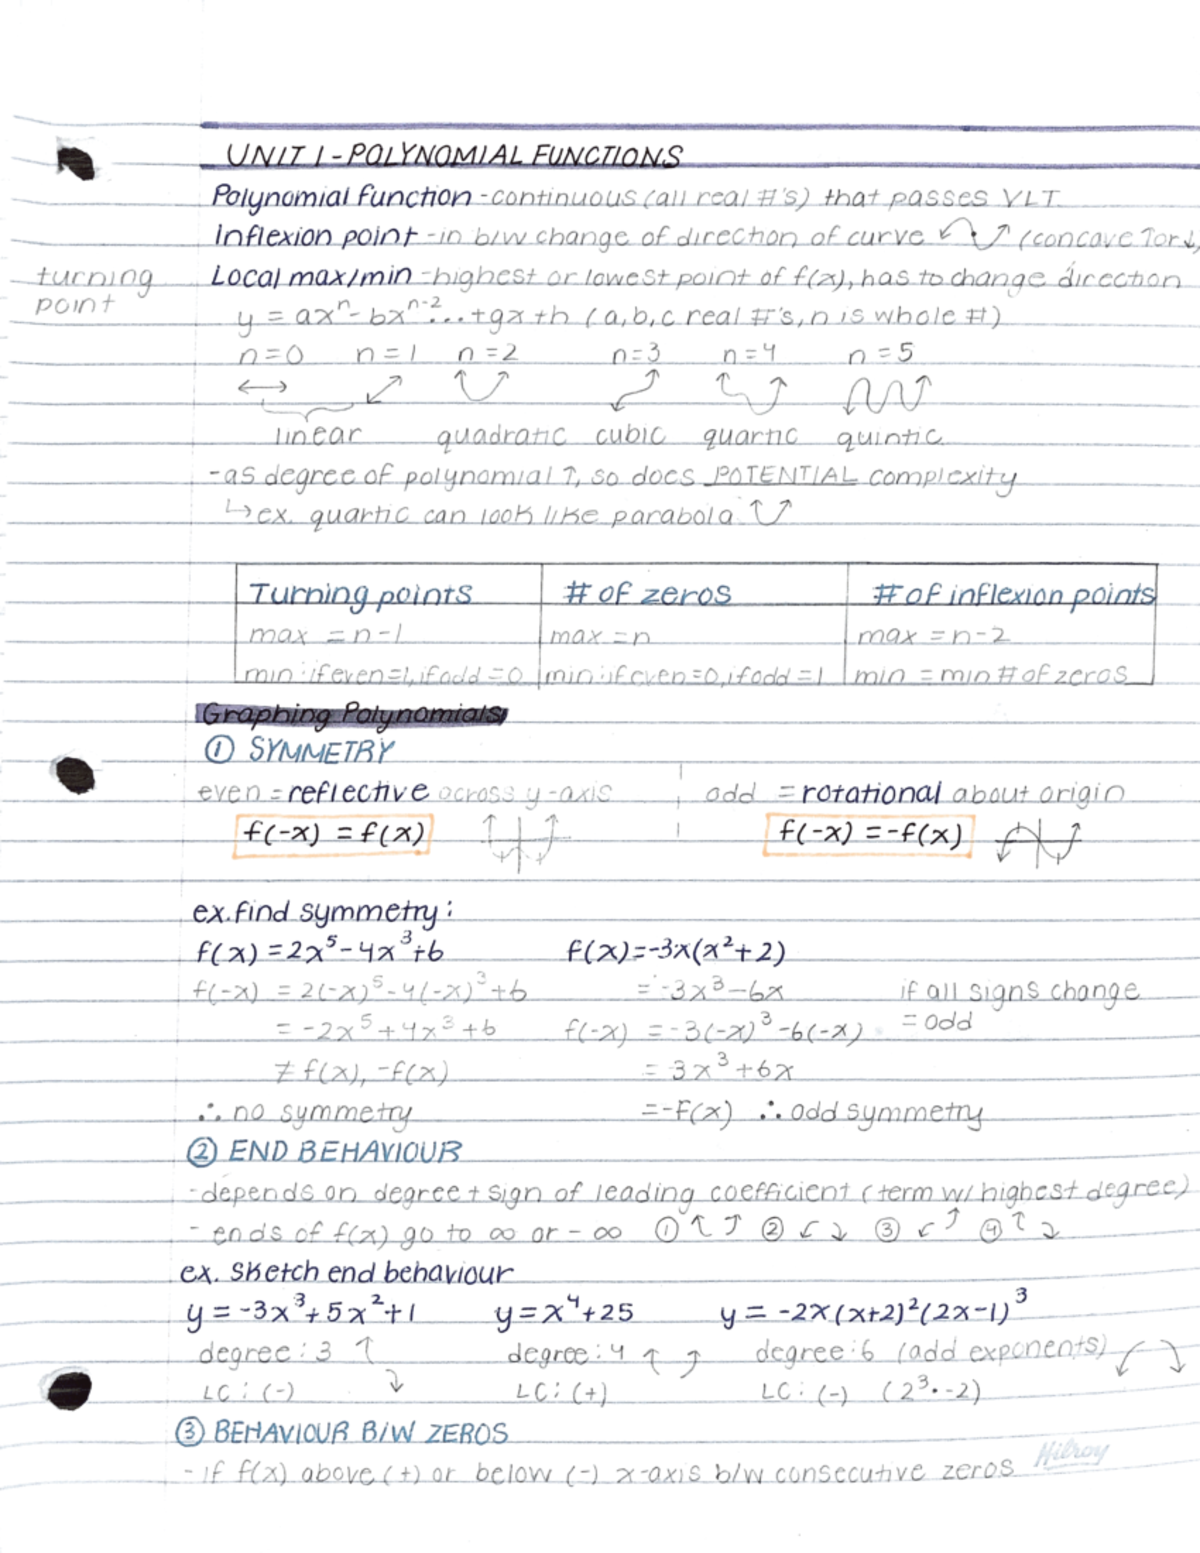 UNIT 1 - POLYNOMIAL FUNCTIONS
Polynomial function - continuous (all real #'s) that passes VLT
Inflexion point - in b/w change of direction of curve (concave ↑or↓)
turning point
Local max/min - highest or lowest point of f(x), has to change direction
y = axⁿ - bxⁿ⁻²...+gx+h (a,b,c real #'s, n is whole #)
n=0 n=1 n=2 n=3 n=4 n=5
linear quadratic cubic quartic quintic
- as degree of polynomial ↑, so does POTENTIAL complexity
↳ ex. quartic can look like parabola
Turning points # of zeros # of inflexion points
max = n-1 max = n max = n-2
min: if even=1, if odd=0 min: if even=0, if odd=1 min = min # of zeros
Graphing Polynomials
① SYMMETRY
even = reflective across y-axis odd = rotational about origin
f(-x) = f(x) f(-x) = -f(x)
ex. find symmetry:
f(x) = 2x⁵ - 4x³ + 6 f(x) = -3x(x²+2)
f(-x) = 2(-x)⁵ - 4(-x)³ + 6 = -3x³ - 6x if all signs change
= -2x⁵ + 4x³ + 6 f(-x) = -3(-x)³ - 6(-x) = odd
≠ f(x), -f(x) = 3x³ + 6x
∴ no symmetry = -f(x) ∴ odd symmetry
② END BEHAVIOUR
- depends on degree + sign of leading coefficient (term w/ highest degree)
- ends of f(x) go to ∞ or -∞ ① ↑↑ ② ↙↘ ③ ↙↗ ④ ↖↘
ex. Sketch end behaviour
y = -3x³ + 5x² + 1 y = x⁴ + 25 y = -2x(x+2)²(2x-1)³
degree: 3 degree: 4 degree: 6 (add exponents)
LC: (-) LC: (+) LC: (-) (2³·-2)
③ BEHAVIOUR B/W ZEROS
- if f(x) above (+) or below (-) x-axis b/w consecutive zeros
Hilroy